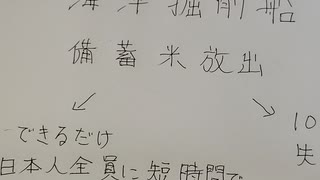 海洋掘削船
備蓄米放出
できるだけ
日本人全員に短時間で
10
失